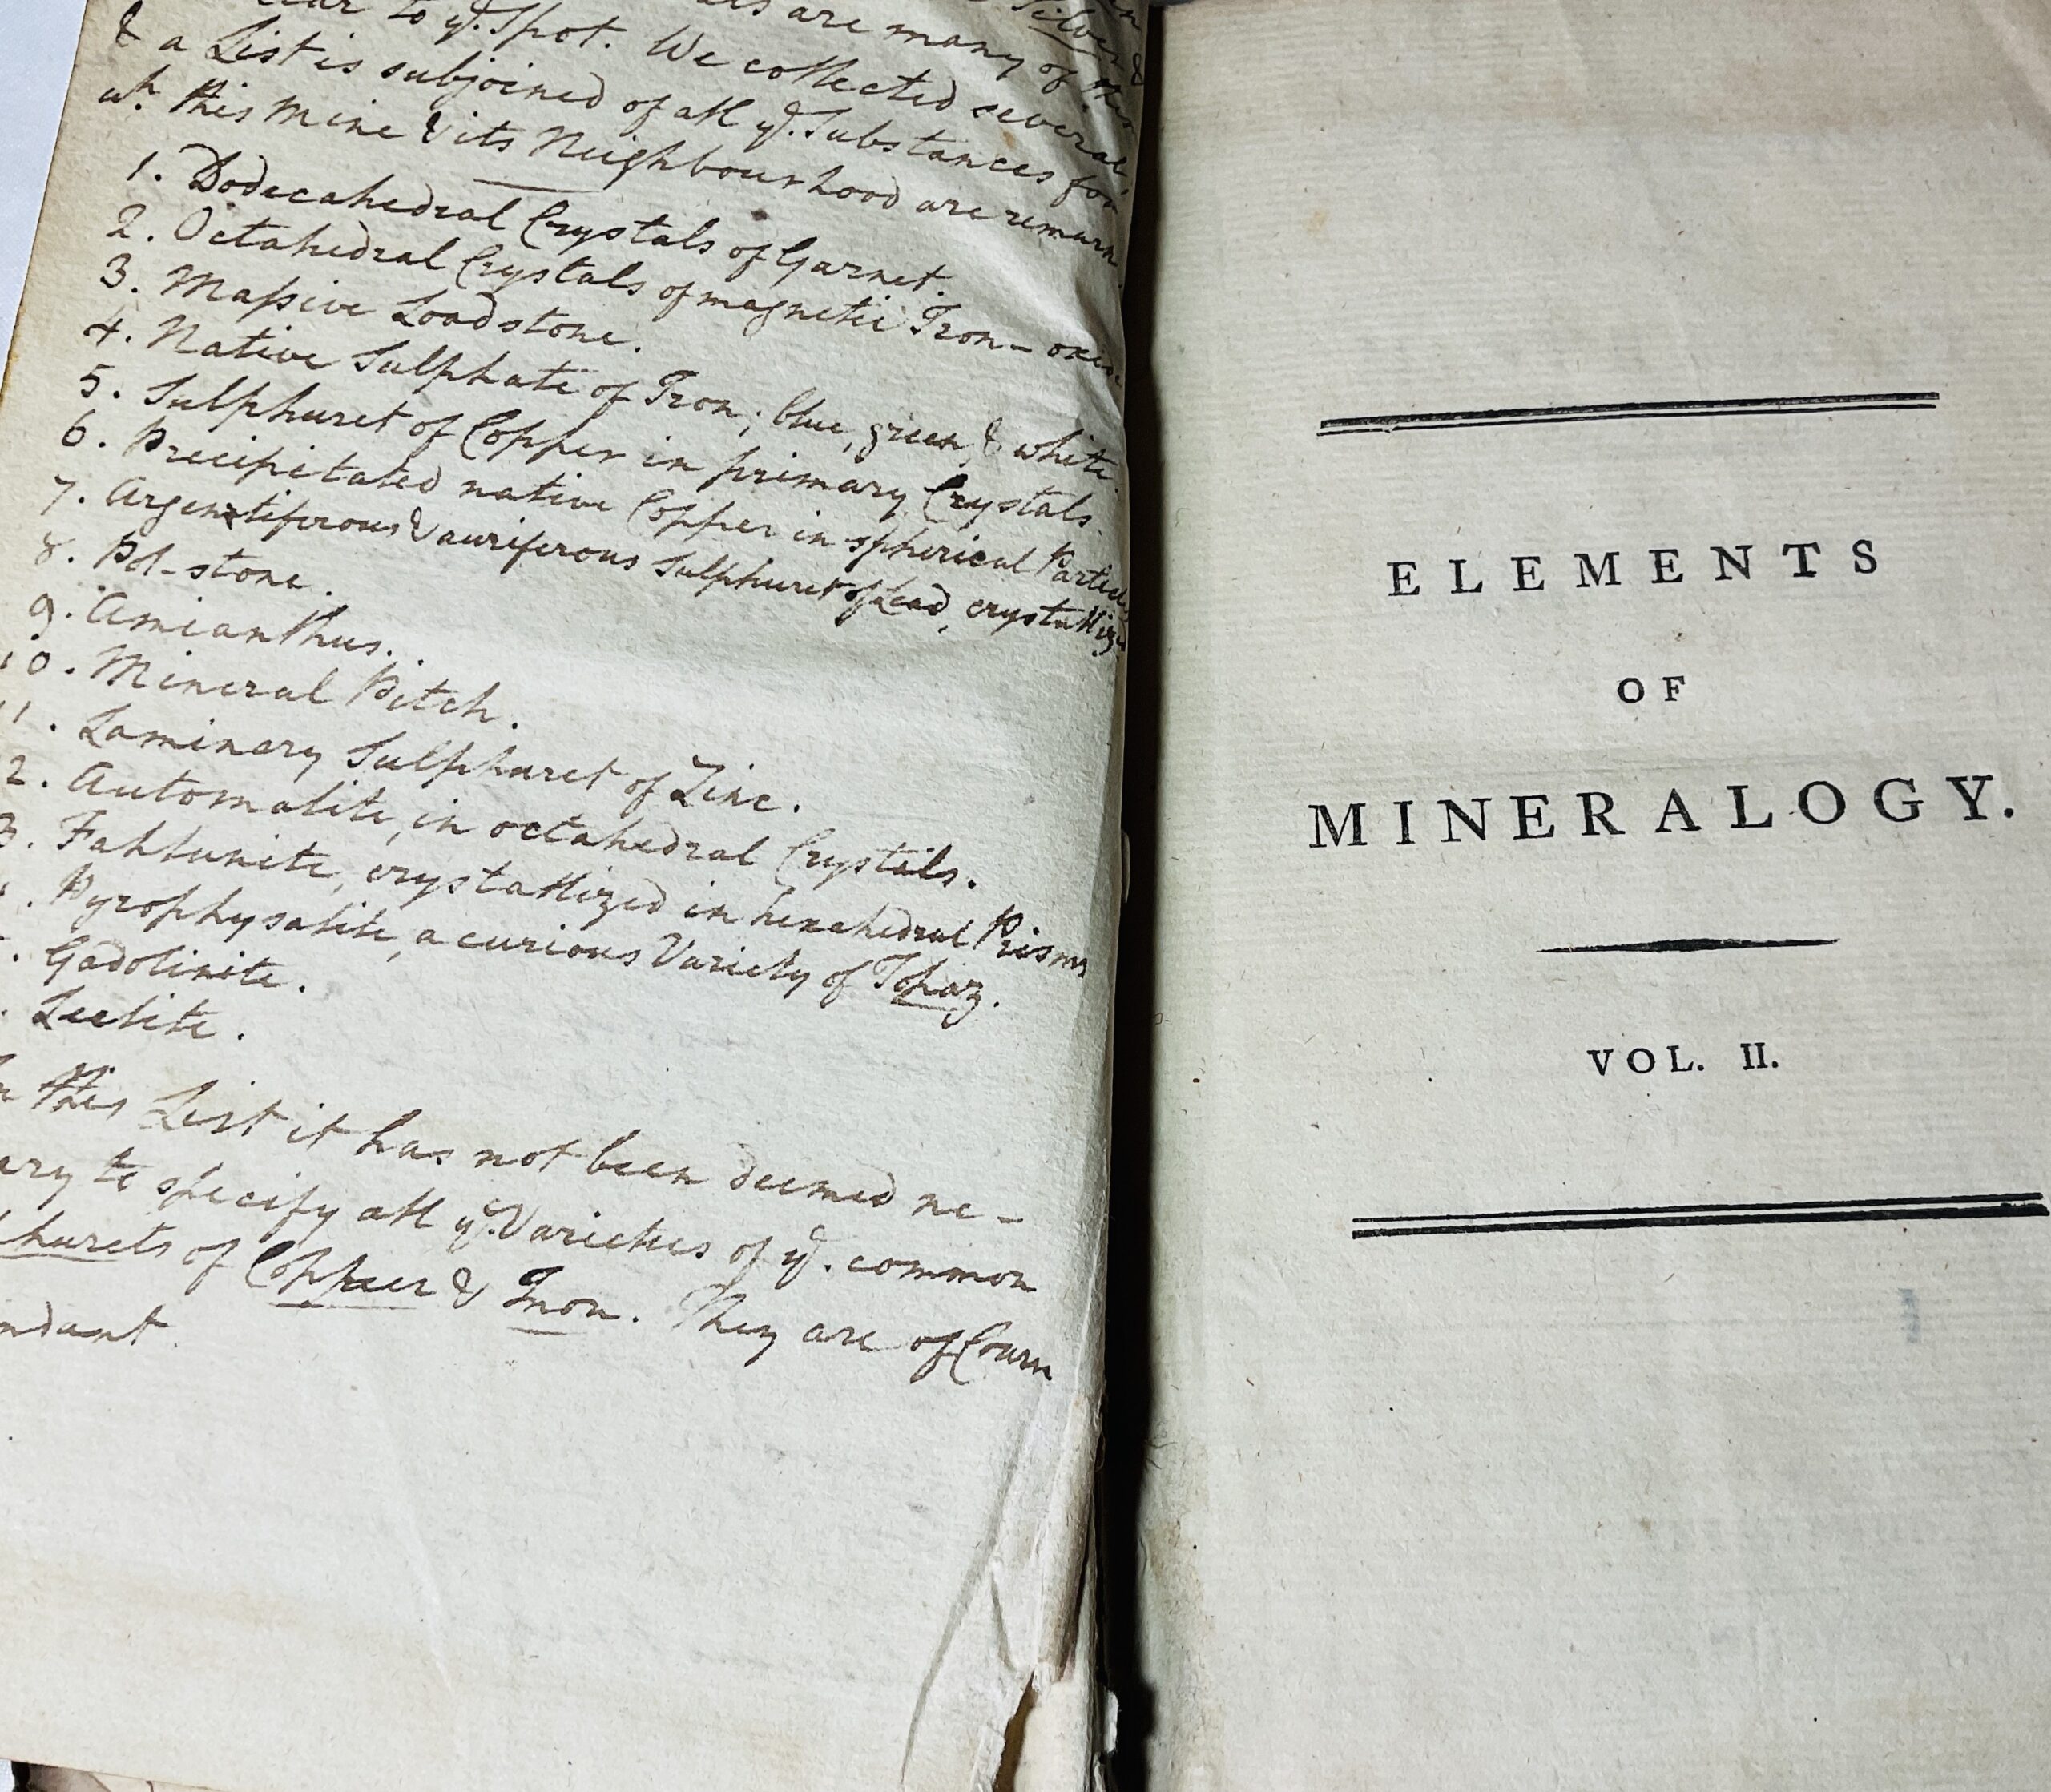 Silver &
are many of
to yͤ. Spot. We collected several,
& a List is subjoined of all yͤ. Substances for
wh. this Mine & its Neighbourhood are remark
1. Dodecahedral Crystals of Garnet.
2. Octahedral Crystals of magnetic Iron-
3. Maſsive Loadstone.
4. Native Sulphate of Iron; blue, green, & white.
5. Sulphuret of Copper in primary Crystals.
6. Precipitated native Copper in spherical
7. Argentiferous & auriferous Sulphuret of Lead,
8. Pot-stone.
9. Amianthus.
10. Mineral Pitch.
11. Laminary Sulphuret of Zinc.
2. Automalite, in octahedral Crystals.
3. Fahlunite, crystallized in hexahedral Prisms
. Pyrophysalite, a curious Variety of Topaz.
. Gadolinite.
. Leelite.
this List it has not been deemed ne-
ary to specify all yͤ. Varieties of yͤ. common
hurets of Copper & Iron. They are of Course
ndant.
ELEMENTS
OF
MINERALOGY.
VOL. II.